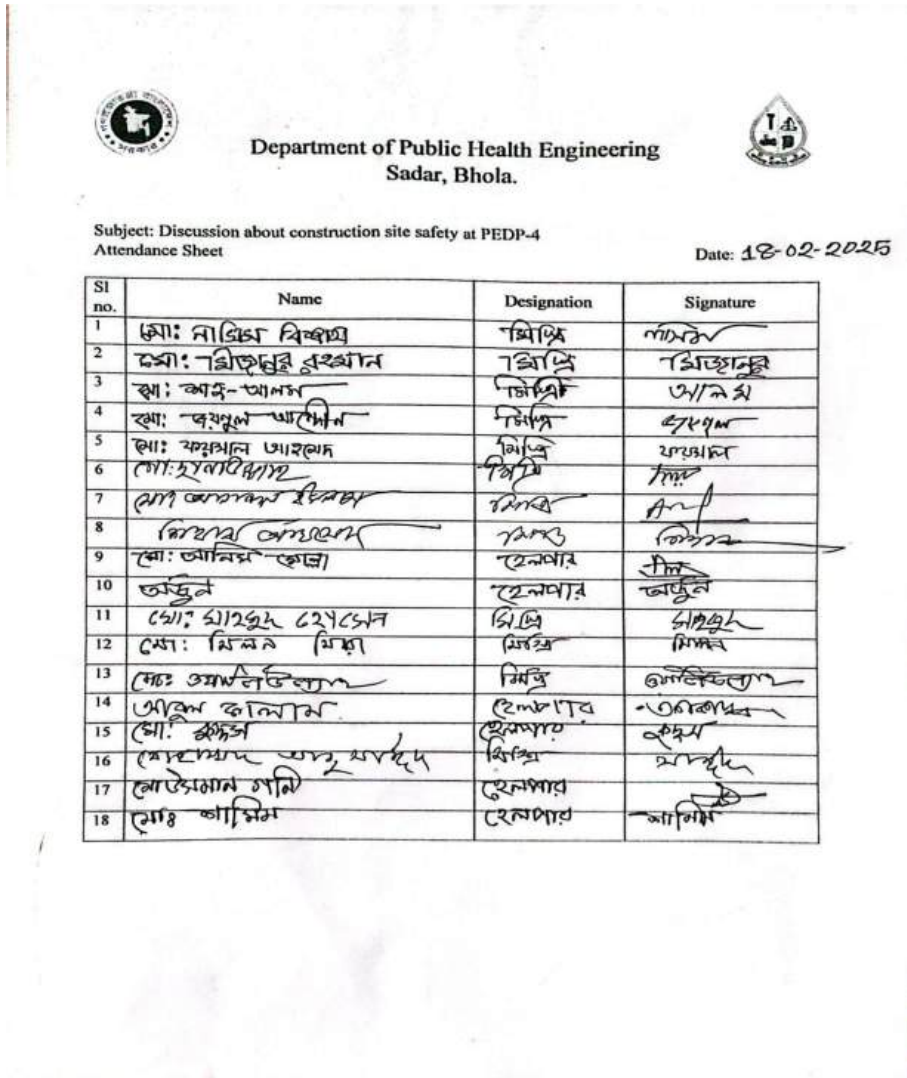 Department of Public Health Engineering
Sadar, Bhola.
Subject: Discussion about construction site safety at PEDP-4
Attendance Sheet
Date: 18-02-2025
Sl no. Name Designation Signature
1 মো: নাসিম বিশ্বাস মিস্ত্রি নাসিম
2 মো: মিজানুর রহমান মিস্ত্রি মিজানুর
3 মো: শাহ-আলম মিস্ত্রী আলম
4 মো: জয়নুল আবেদীন মিস্ত্রি জয়নুল
5 মো: ফয়সাল আহমেদ মিস্ত্রি ফয়সাল
6 মো: মিস্ত্রি
7 মোঃ ইসলাম মিস্ত্রি
8 মিস্ত্রি
9 মো: আনিস মোল্লা হেলপার
10 অর্জুন হেলপার অর্জুন
11 মো: মাহমুদ হোসেন মিস্ত্রি মাহমুদ
12 মো: মিলন মিয়া মিস্ত্রি মিলন
13 মোঃ ওয়ালিউল্যাহ মিস্ত্রি ওয়ালিউল্যাহ
14 আবুল কালাম হেলপার
15 মো: কুদ্দুস হেলপার কুদ্দুস
16 মোহাম্মদ আবু সাঈদ মিস্ত্রি সাঈদ
17 মো উসমান গনি হেলপার
18 মোঃ শামিম হেলপার শামিম